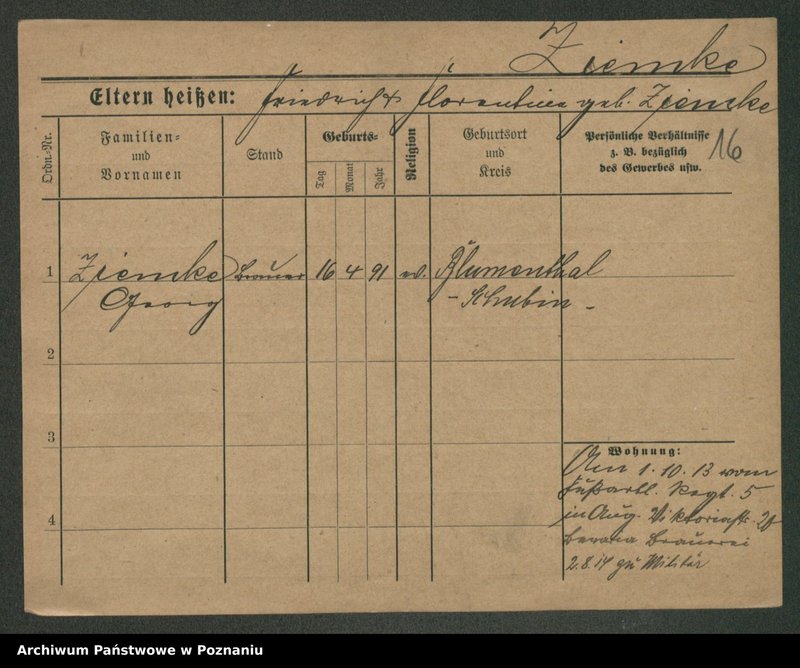 Ziemke
Eltern heißen: Friedrich & Florentine geb. Ziemke
Ordn.-Nr.
Familien-
und
Vornamen
Stand
Geburts-
Tag
Monat
Jahr
Religion
Geburtsort
und
Kreis
Persönliche Verhältnisse
z. B. bezüglich
des Gewerbes usw.
16
1 Ziemke Brauer 16 4 91 ev. Blumenthal
Georg - Schubin -
2
3
4
Wohnung:
Am 1.10.13 vom
Fußartl. Regt. 5
in Aug. Viktoriastr. 20
Brauerei
2.8.14 zu Militär
Archiwum Państwowe w Poznaniu